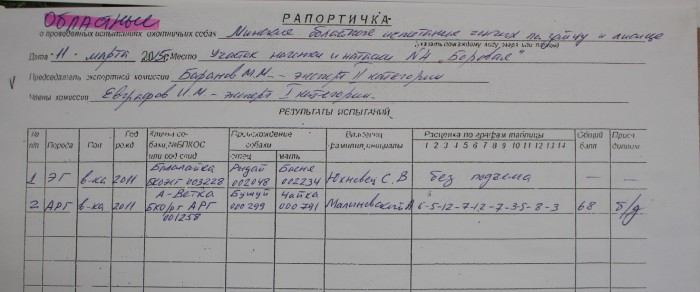 ОБЛАСТНЫЕ
РАПОРТИЧКА
о проведенных испытаниях охотничьих собак Минские областное испытание гончих по зайцу и лисице
(указать по какому виду зверя или птицы)
Дата 11 марта 2015г. Место Участок нагонки и натаски №4 "Боровая"
Председатель экспертной комиссии Баранов М.М. - эксперт II категории
Члены комиссии Евграфов И.М - эксперт I категории.
РЕЗУЛЬТАТЫ ИСПЫТАНИЙ
№ п/п Порода Пол Год рожд Кличка собаки, №ВПКОС или род. свид Происхождение собаки отец мать Владелец фамилия, инициалы Расценка по графам таблицы 1 2 3 4 5 6 7 8 9 10 11 12 13 14 Общий балл Присв. диплом
1 ЭГ в-ка 2011 Балалайка БКОЭГ 003228 Рыдай 002048 Басня 002234 Юхновец С.В без подъема — —
2 АРГ в-ка 2011 А-Ветка БКО/рг АРГ 001258 Бушуй 000299 Чайка 000791 Малиновский А 6-5-12-7-12-7-3-5-8-3 68 б/д